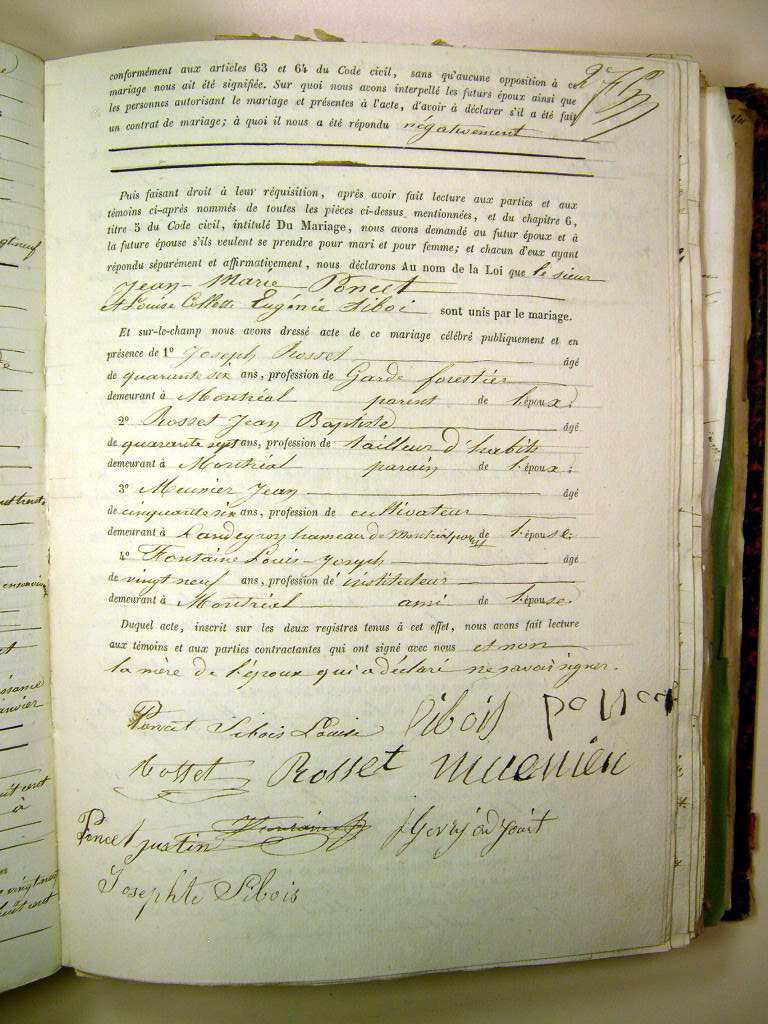 conformément aux articles 63 et 64 du Code civil, sans qu'aucune opposition à ce
mariage nous ait été signifiée. Sur quoi nous avons interpellé les futurs époux ainsi que
les personnes autorisant le mariage et présentes à l'acte, d'avoir à déclarer s'il a été fait
un contrat de mariage; à quoi il nous a été répondu négativement
Puis faisant droit à leur réquisition, après avoir fait lecture aux parties et aux
témoins ci-après nommés de toutes les pièces ci-dessus mentionnées, et du chapitre 6,
titre 5 du Code civil, intitulé Du Mariage, nous avons demandé au futur époux et à
la future épouse s'ils veulent se prendre pour mari et pour femme; et chacun d'eux ayant
répondu séparément et affirmativement, nous déclarons Au nom de la Loi que le sieur
Jean-Marie Poncet
et Louise Collette Eugénie Siboi sont unis par le mariage.
Et sur-le-champ nous avons dressé acte de ce mariage célébré publiquement et en
présence de 1° Joseph Rosset âgé
de quarante six ans, profession de Garde forestier
demeurant à Montréal parent de l'époux:
2° Rosset Jean Baptiste âgé
de quarante sept ans, profession de tailleur d'habits
demeurant à Montréal parain de l'époux:
3° Meunier Jean âgé
de cinquante six ans, profession de cultivateur
demeurant à Landeyron hameau de Montréal de l'épouse:
4° Fontaine Louis-Joseph âgé
de vingt neuf ans, profession d'instituteur
demeurant à Montréal ami de l'épouse.
Duquel acte, inscrit sur les deux registres tenus à cet effet, nous avons fait lecture
aux témoins et aux parties contractantes qui ont signé avec nous et non
la mère de l'époux qui a déclaré ne savoir signer.
Poncet Sibois Louise Sibois
Rosset Rosset Meunier
Poncet Justin Fontaine
Josephte Sibois